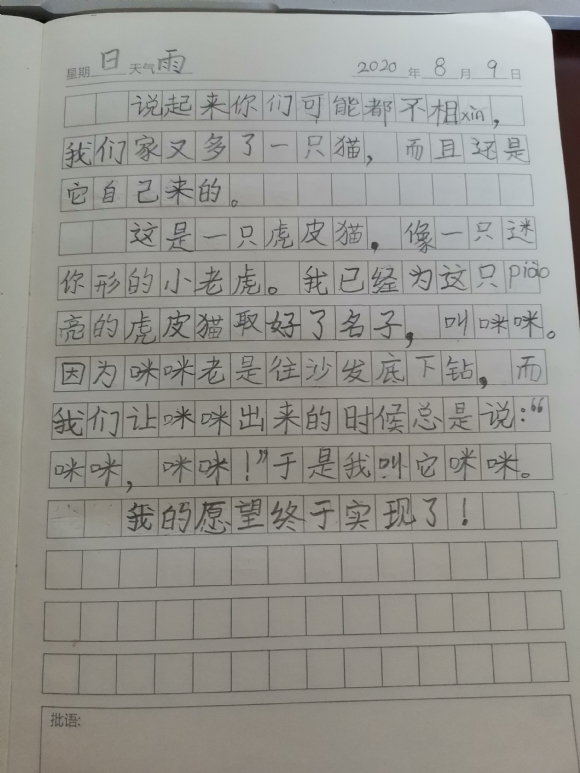 星期 日 天气 雨 2020 年 8 月 9 日
说起来你们可能都不相xin,
我们家又多了一只猫，而且还是
它自己来的。
这是一只虎皮猫，像一只迷
你形的小老虎。我已经为这只piào
亮的虎皮猫取好了名子，叫咪咪。
因为咪咪老是往沙发底下钻，而
我们让咪咪出来的时候总是说：“
咪咪，咪咪！”于是我叫它咪咪。
我的愿望终于实现了！
批语: